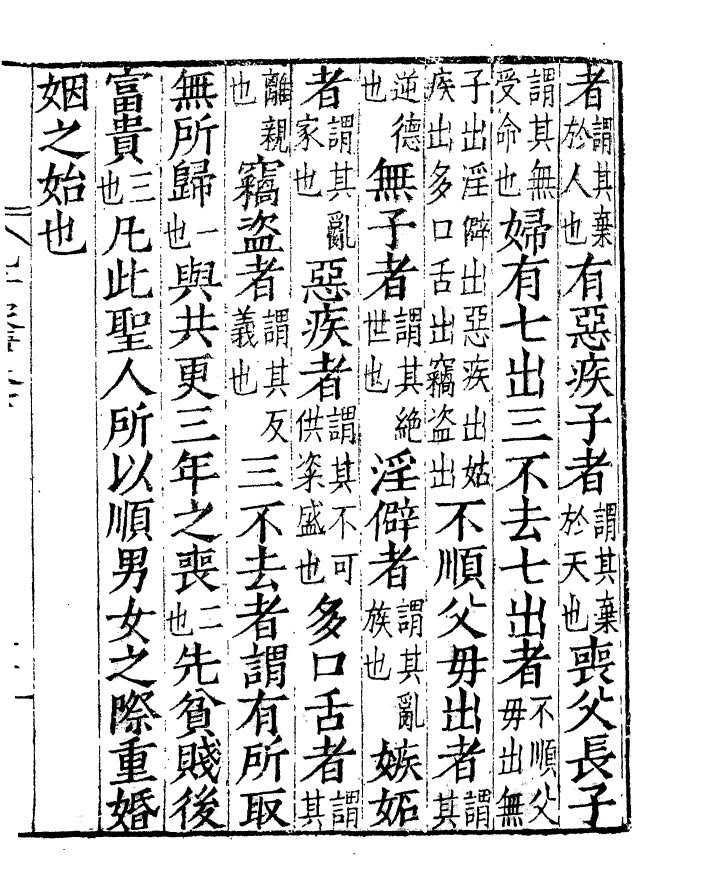 者謂其棄於人也有惡疾子者謂其棄於天也喪父長子
謂其無受命也婦有七出三不去七出者不順父毋出無
子出淫僻出惡疾出姑疾出多口舌出竊盗出不順父毋出者謂其
逆德也無子者謂其絶世也淫僻者謂其亂族也嫉妬
者謂其亂家也惡疾者謂其不可供粢盛也多口舌者謂其
離親也竊盗者謂其反義也三不去者謂有所取
無所歸一也與共更三年之喪二也先貧賤後
富貴三也凡此聖人所以順男女之際重婚
姻之始也